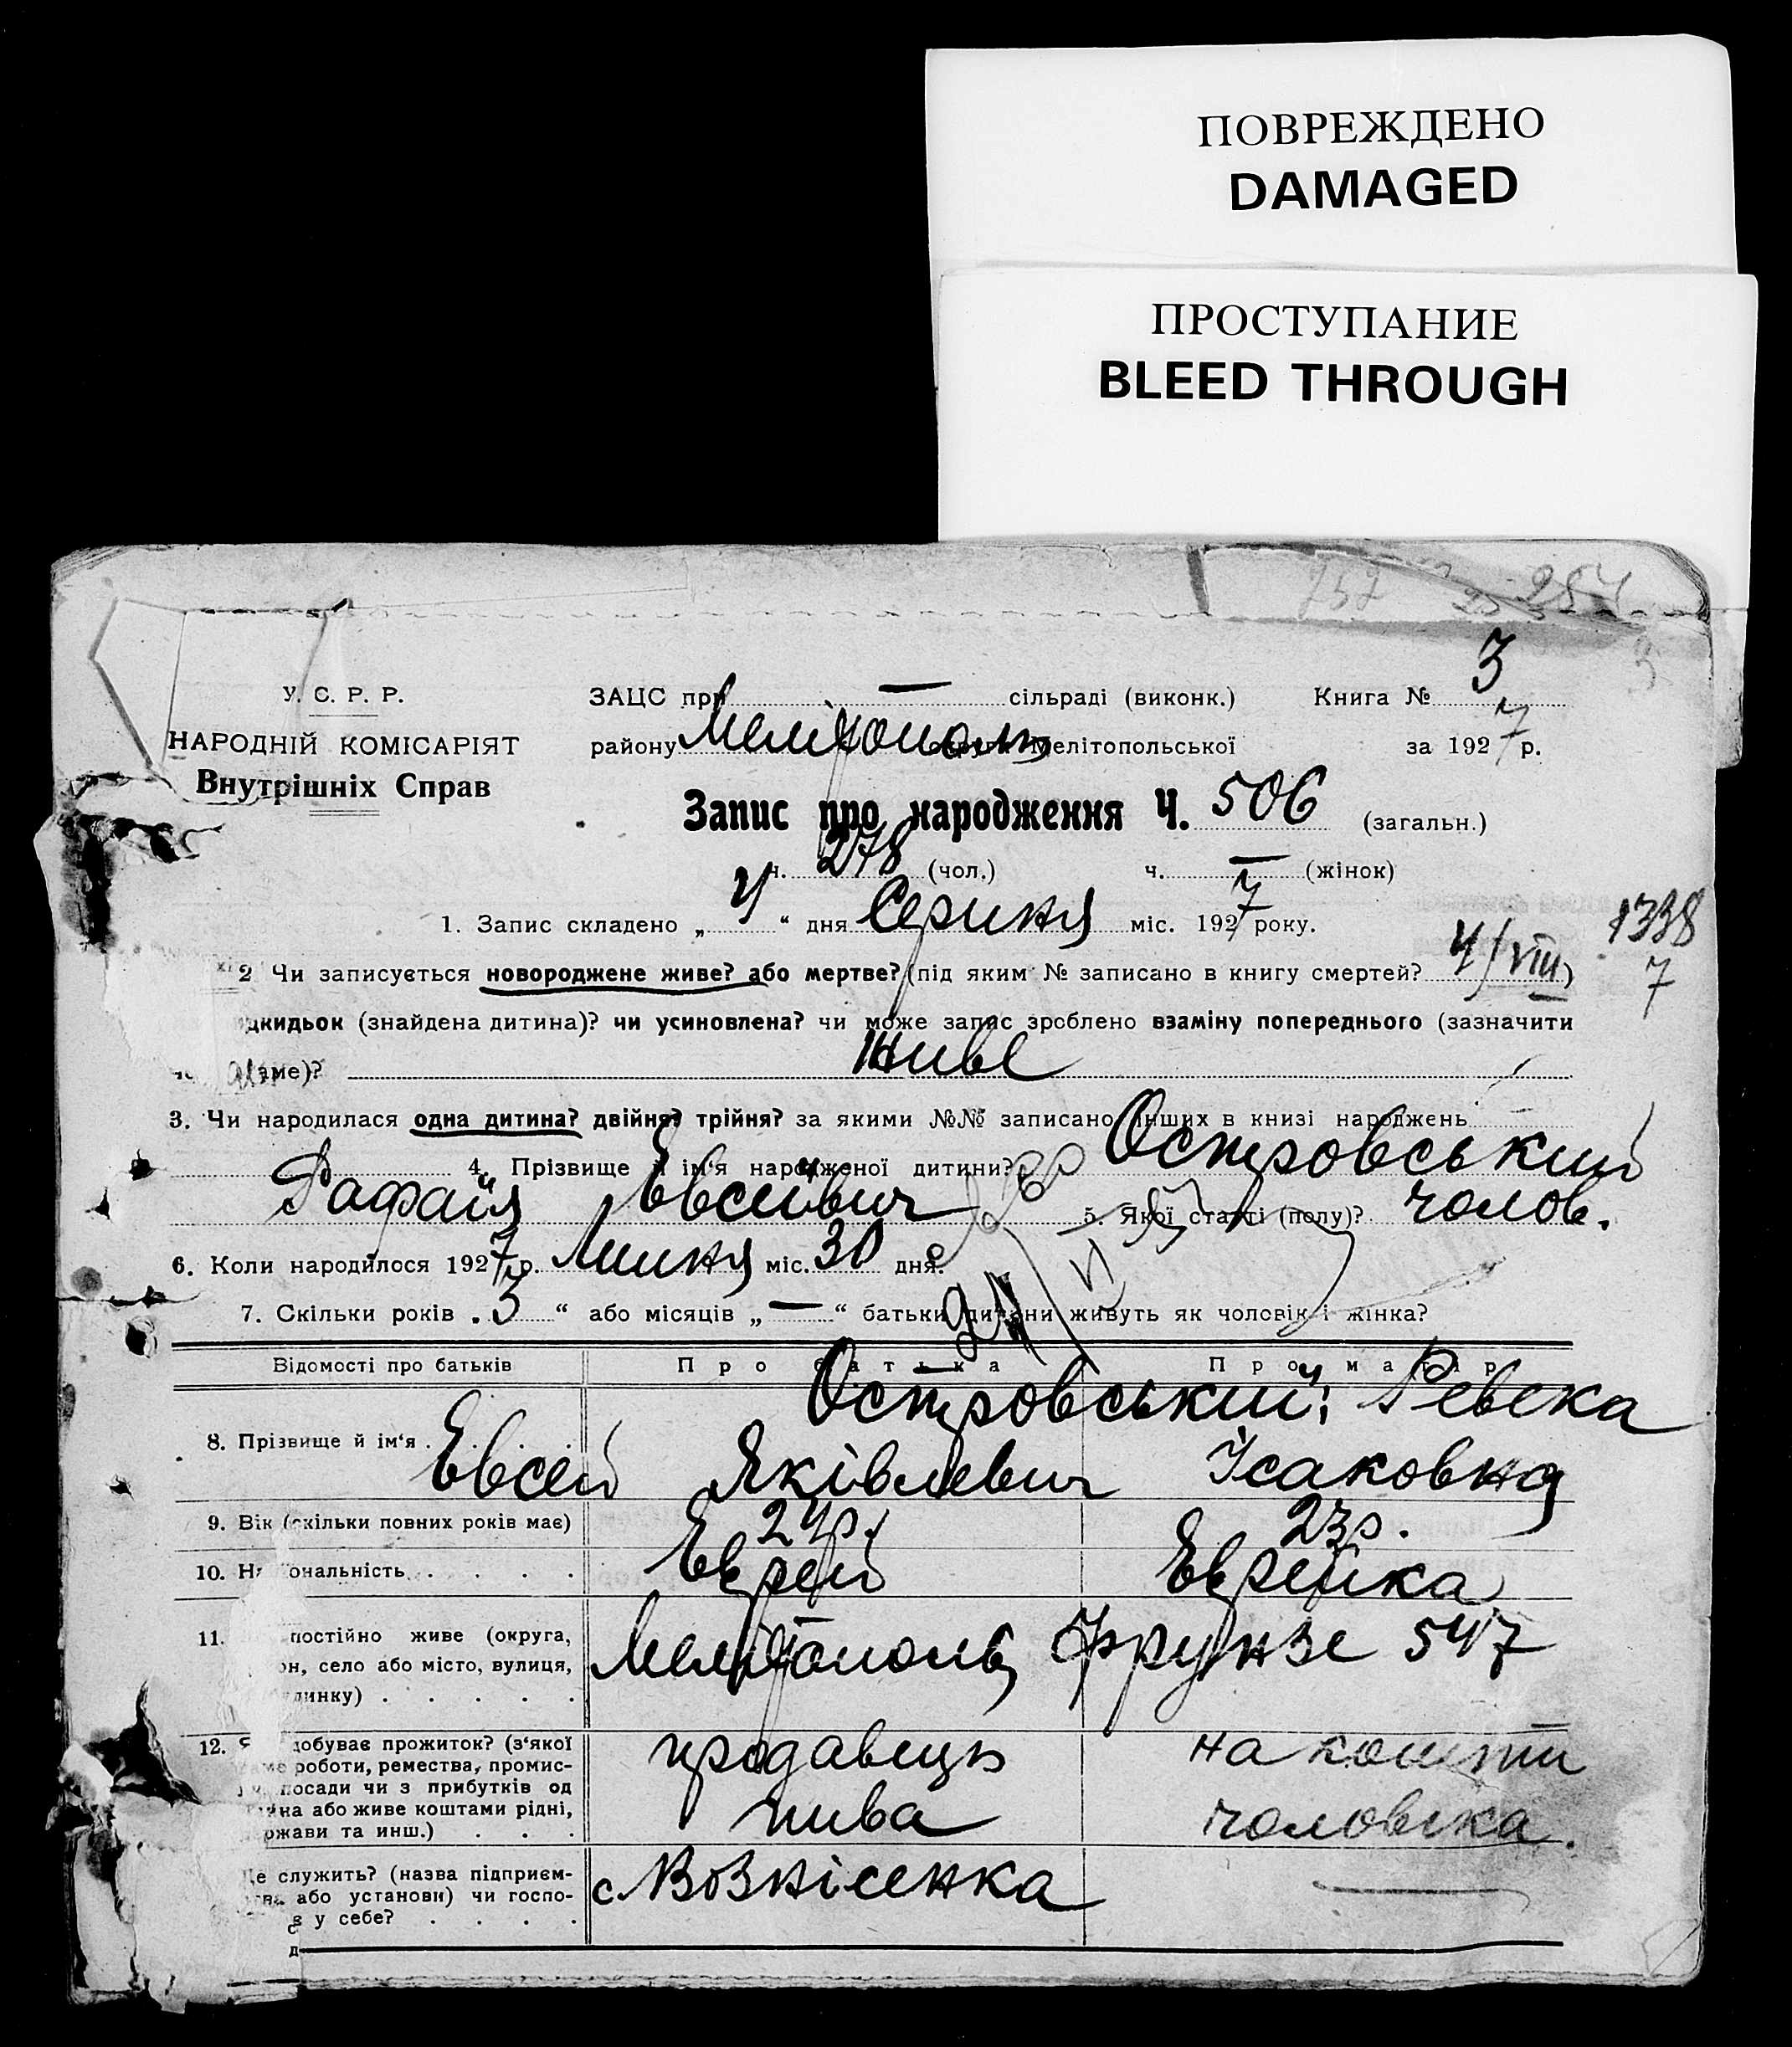 ПОВРЕЖДЕНО
DAMAGED
ПРОСТУПАНИЕ
BLEED THROUGH
257 254
У. С. Р. Р.
НАРОДНІЙ КОМІСАРІЯТ
Внутрішніх Справ
ЗАЦС при — сільраді (виконк.) Книга № 3
району Мелітополь округи Мелітопольської за 1927 р.
Запис про народження Ч. 506 (загальн.)
ч. 278 (чол.) ч. — (жінок)
1. Запис складено „ 4 “ дня Серпня міс. 1927 року.
1338
7
2 Чи записується новороджене живе? або мертве? (під яким № записано в книгу смертей? 4/VIII)
дкидьок (знайдена дитина)? чи усиновлена? чи може запис зроблено взаміну попереднього (зазначити
аме)? живе
3. Чи народилася одна дитина? двійня? трійня? за якими №№ записано інших в книзі народжень
4. Прізвище й ім'я народженої дитини? Островський
Рафаїл Евсеївич 5. Якої статі (полу)? чолов.
6. Коли народилося 1927 р. Липня міс. 30 дня.
7. Скільки років „ 3 “ або місяців „ — “ батьки дитини живуть як чоловік і жінка?
Відомості про батьків Про батька Про матір
8. Прізвище й ім'я Островський; Ревека
Евсей Яківлевич Ісаковна
9. Вік (скільки повних років має) 24р. 23р.
10. Національність Еврей Еврейка
11. постійно живе (округа,
он, село або місто, вулиця,
динку) Мелітополь, Фрунзе 547
12. добуває прожиток? (з'якої
роботи, ремества, промис-
посади чи з прибутків од
на або живе коштами рідні,
ржави та инш.) продавець
пива на кошти
чоловіка.
Це служить? (назва підприєм-
ва або установи) чи госпо-
є у себе? с. Вознісенка —